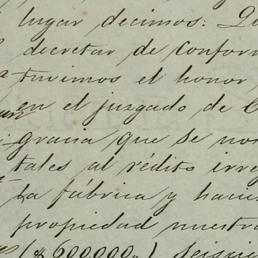 lugar decimos: Qu
decretar de conform
tuvimos el honor
en el juzgado de C
gracia que se nos
tales al rédito irre
La fábrica y haci
propiedad nuestra
($600.000,,) Seiscie